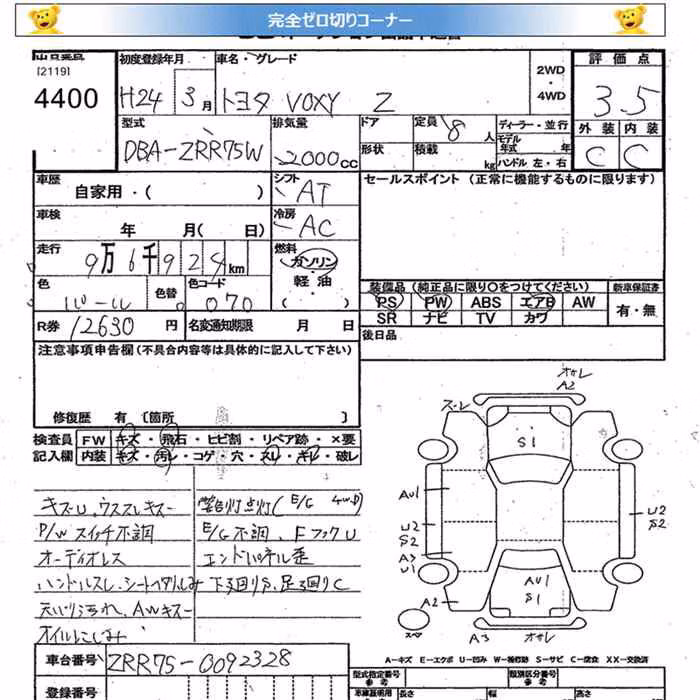 完全ゼロ切りコーナー
[2119]
4400
初度登録年月
H24 3月
車名・グレード
トヨタ VOXY Z
2WD
・
4WD
評価点
3.5
外装 内装
C C
型式
DBA-ZRR75W
排気量
2000cc
ドア
形状
定員 8人
積載 kg
ディーラー・並行
モデル年式 年
ハンドル 左・右
車歴
自家用・( )
シフト
AT
セールスポイント (正常に機能するものに限ります)
車検
年 月( 日)
冷房
AC
走行
9万6千924km
燃料
ガソリン
・
軽油
・
( )
色
パール
色替
色コード
070
装備品 (純正品に限り○をつけてください)
PS PW ABS エアB AW
SR ナビ TV カワ
新車保証書
有・無
R券 12630円
名変通知期限 月 日
後日品
注意事項申告欄(不具合内容等は具体的に記入して下さい)
修復歴 有 〔箇所 〕
検査員
記入欄
FW キズ・飛石・ヒビ割・リペア跡・×要
内装 キズ・汚レ・コゲ・穴・スレ・キレ・破レ
キズU、ウススレキズー
P/W スイッチ不調
オーディオレス
オイルにじみ
警告灯点灯(E/G 4WD)
E/G不調、FフックU
エンドパネル歪
下廻りS、足廻りC
オサレ
A2
ズレ
S1
AU1
U2
S2
A3
U1
A2
U2
S2
AU1
S1
スペア
A3 オサレ
A-キズ E-エクボ U-凹み W-補修跡 S-サビ C-腐食 XX-交換済
車台番号 ZRR75-0092328
登録番号
型式指定番号
参考
類別区分番号
参考
車庫証明用
参考
長さ
幅
高さ